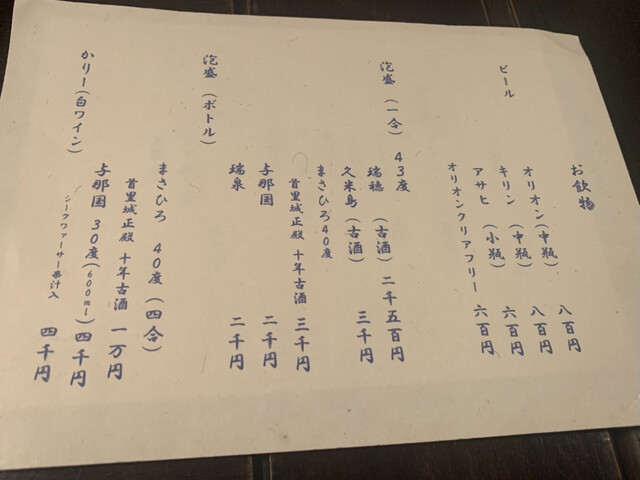 お飲物
ビール
オリオン(中瓶) 八百円
キリン(中瓶) 八百円
アサヒ(小瓶) 六百円
オリオンクリアフリー 六百円
泡盛(一合) 43度
瑞穂(古酒) 二千五百円
久米島(古酒) 三千円
まさひろ40度
首里城正殿 十年古酒 三千円
与那国 二千円
瑞泉 二千円
泡盛(ボトル)
まさひろ 40度(四合)
首里城正殿 十年古酒 一万円
与那国 30度(600ml) 四千円
かりー(白ワイン)
シークヮーサー果汁入 四千円